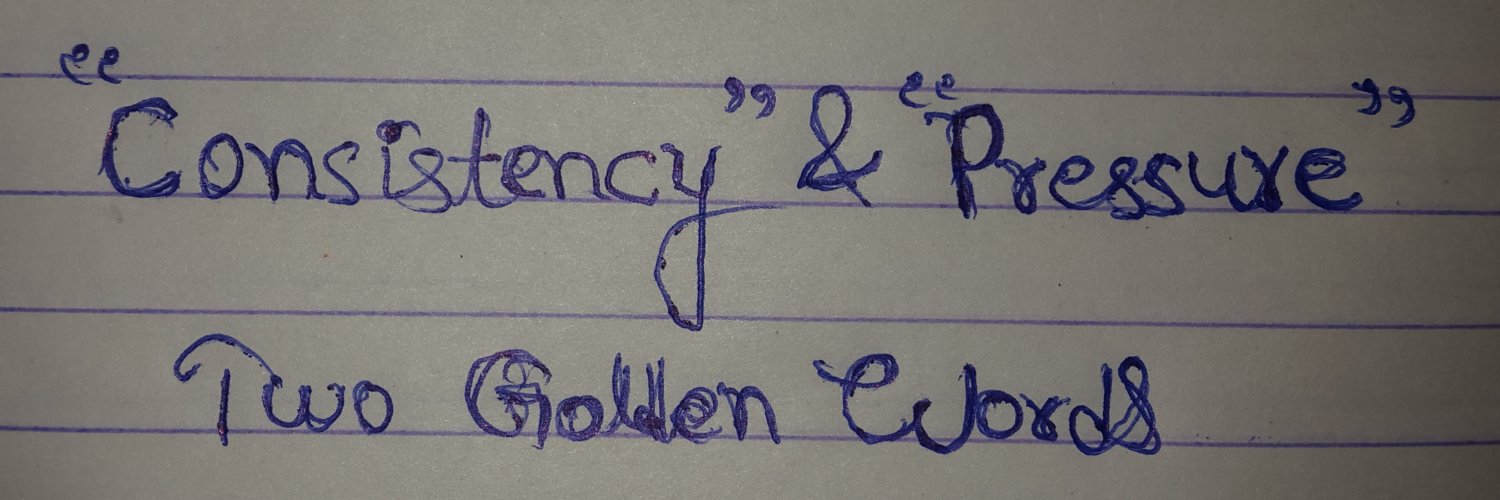 “Consistency” & “Pressure”
Two Golden Words